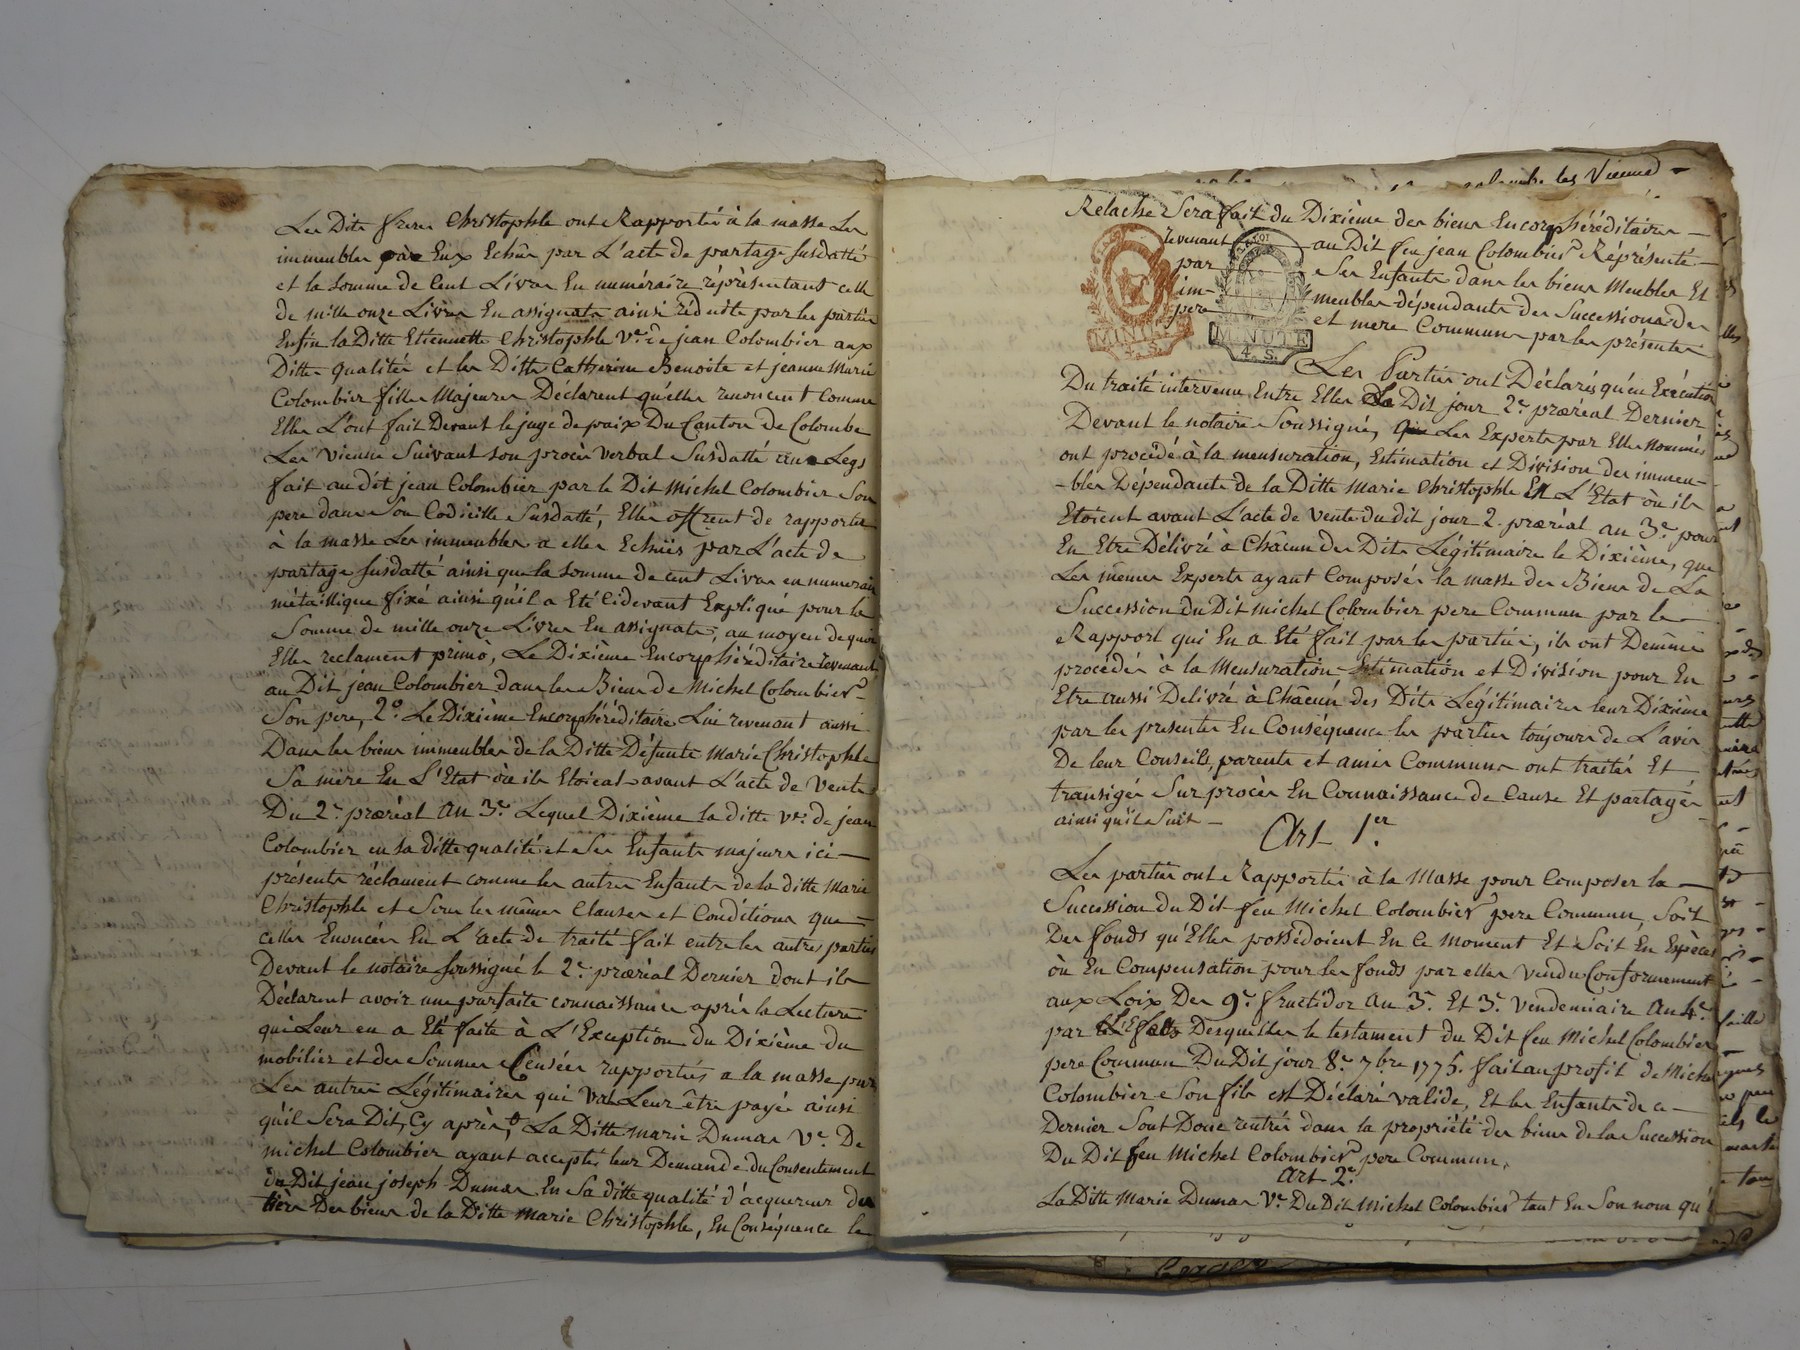 Les Dits freres Christophle ont Rapporté à la masse Les
immeubles par Eux Echus par L'acte de partage susdatté
et la somme de Cent Livres En numéraire réprésentant celle
de mille onze Livres En assignats ainsi réduite par les parties
Enfin la Ditte Etiennette Christophle Ve. de jean Colombier aux
Dittes qualités et les Dittes Catherine Benoite et jeanne Marie
Colombier filles Majeures Déclarent qu'elles renoncent comme
Elles L'ont fait Devant le juge de paix Du Canton de Colombe
Les Vienne Suivant son procès verbal Susdatté au Legs
fait au dit jean Colombier par le Dit Michel Colombier Son
pere dans Son Codicille Susdatté, Elles offrent de rapporter
à la masse Les immeubles a elles Echüs par L'acte de
partage susdatté ainsi que la somme de cent Livres en numeraire
métaillique fixé ainsi qu'il a Eté Cidevant Expliqué pour la
Somme de mille onze Livres En assignats, au moyen de quoi
Elles reclament primò, Le Dixième Encorps héréditaire revenant
au Dit jean Colombier dans les Biens de Michel Colombier
Son pere, 2º. Le Dixième Encorps héréditaire Lui revenant aussi
Dans les biens immeubles de la Ditte Défunte Marie Christophle
Sa mère En L'Etat où ils Etoient avant L'acte de Vente
Du 2e. præreal an 3e. Lequel Dixième la ditte ve. de jean
Colombier en sa ditte qualité et Ses Enfants majeurs ici
présents réclament comme les autres Enfants de la ditte Marie
Christophle et Sous les mêmes Clauses et Conditions que
celles Enoncées En L'acte de traité fait entre les autres parties
Devant le notaire soussigné le 2e. præreal Dernier dont ils
Déclarent avoir une parfaite connaissance après la Lecture
qui Leur en a Eté faite à L'Exception du Dixième du
mobilier et des Sommes Censées rapportés a la masse par
Les autres Légitimaires qui va Leur être payé ainsi
qu'il Sera Dit, Cy après, La Ditte marie Dumas Ve. De
michel Colombier ayant accepté leur Demande du Consentement
du Dit jean joseph Dumas En Sa ditte qualité d'acquereur du
tièrs Des biens de la Ditte Marie Christophle, En Conséquence le
Colombe les Vienne
Relache Sera fait du Dixième des biens Encorps héréditaires
revenant au Dit feu jean Colombier Réprésenté
par Ses Enfants dans les biens Meubles Et
im- meubles dépendants des Successions des
pere et mere Communs par les présentes
Les Parties ont Déclarés qu'en Exécution
Du traité intervenu Entre Elles Le Dit jour 2e. præreal Dernier
Devant le notaire Soussigné, Les Experts par Elles nommés
ont procédé à la mensuration, Estimation et Division des immeu-
-bles Dépendants de la Ditte Marie Christophle En L'Etat où ils
Etoient avant L'acte de Vente du dit jour 2. præreal an 3e. pour
En Etre Délivré à Châcun des Dits Légitimaires le Dixième, que
Les mêmes Experts ayant Composés la masse des Biens de La
Succession du Dit Michel Colombier pere Commun par le
Rapport qui En a Eté fait par les parties, ils ont Demême
procédés à la Mensuration Estimation et Division pour En
Etre aussi Delivré à Châcun des Dits Légitimaires leur Dixième
par les presentes En Conséquence les parties toujours de L'avis
De leur Conseils, parents et amis Communs ont traités Et
transigés Sur procès En Connaissance de Cause Et partagés
ainsi qu'il Suit
Art 1er.
Les parties ont Rapportés à la Masse pour Composer la
Succession du Dit feu Michel Colombier pere Commun, Soit
Des fonds qu'Elles possédoient En Ce moment Et Soit En Espèces
où En Compensation pour les fonds par elles vendus Conformement
aux Loix Des 9e. fructidor an 3e. Et 3e. Vendemiaire an 4e.
par Desquelles le testament du Dit feu Michel Colombier
pere Commun Du Dit jour 8e. 7bre 1775. fait au profit de Michel
Colombier Son fils est Déclaré valide, Et les Enfants de ce
Dernier Sont Donc rentrés dans la propriété des biens de la Succession
Du Dit feu Michel Colombier pere Commun.
Art 2e.
La Ditte Marie Dumas Ve. Du Dit Michel Colombier tant En Son nom qu'
MINUTE
4. S.
MINUTE
4. S.